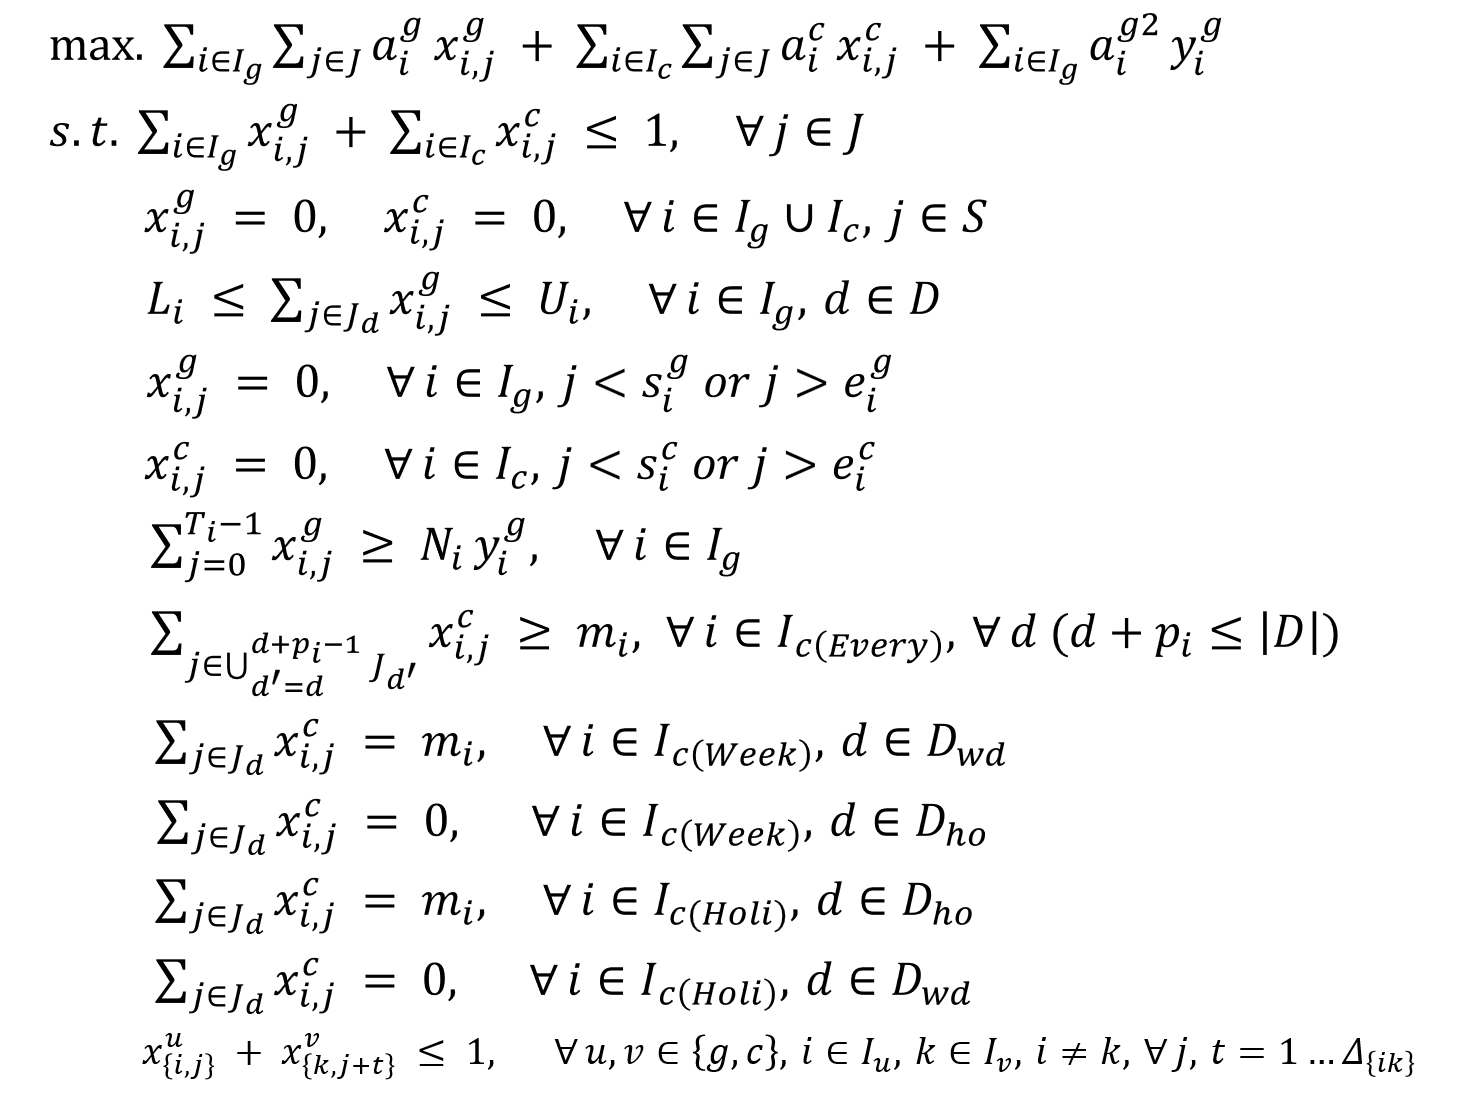 max. ∑_{i∈I_g} ∑_{j∈J} a_i^g x_{i,j}^g + ∑_{i∈I_c} ∑_{j∈J} a_i^c x_{i,j}^c + ∑_{i∈I_g} a_i^{g2} y_i^g
s.t. ∑_{i∈I_g} x_{i,j}^g + ∑_{i∈I_c} x_{i,j}^c ≤ 1, ∀ j ∈ J
x_{i,j}^g = 0, x_{i,j}^c = 0, ∀ i ∈ I_g ∪ I_c, j ∈ S
L_i ≤ ∑_{j∈J_d} x_{i,j}^g ≤ U_i, ∀ i ∈ I_g, d ∈ D
x_{i,j}^g = 0, ∀ i ∈ I_g, j < s_i^g or j > e_i^g
x_{i,j}^c = 0, ∀ i ∈ I_c, j < s_i^c or j > e_i^c
∑_{j=0}^{T_i−1} x_{i,j}^g ≥ N_i y_i^g, ∀ i ∈ I_g
∑_{j∈⋃_{d′=d}^{d+p_i−1} J_{d′}} x_{i,j}^c ≥ m_i, ∀ i ∈ I_{c(Every)}, ∀ d (d + p_i ≤ |D|)
∑_{j∈J_d} x_{i,j}^c = m_i, ∀ i ∈ I_{c(Week)}, d ∈ D_{wd}
∑_{j∈J_d} x_{i,j}^c = 0, ∀ i ∈ I_{c(Week)}, d ∈ D_{ho}
∑_{j∈J_d} x_{i,j}^c = m_i, ∀ i ∈ I_{c(Holi)}, d ∈ D_{ho}
∑_{j∈J_d} x_{i,j}^c = 0, ∀ i ∈ I_{c(Holi)}, d ∈ D_{wd}
x_{{i,j}}^u + x_{{k,j+t}}^v ≤ 1, ∀ u, v ∈ {g, c}, i ∈ I_u, k ∈ I_v, i ≠ k, ∀ j, t = 1 … Δ_{{ik}}